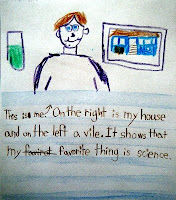 This is me. On the right is my house
and on the left a vile. It shows that
my favorite thing is science.